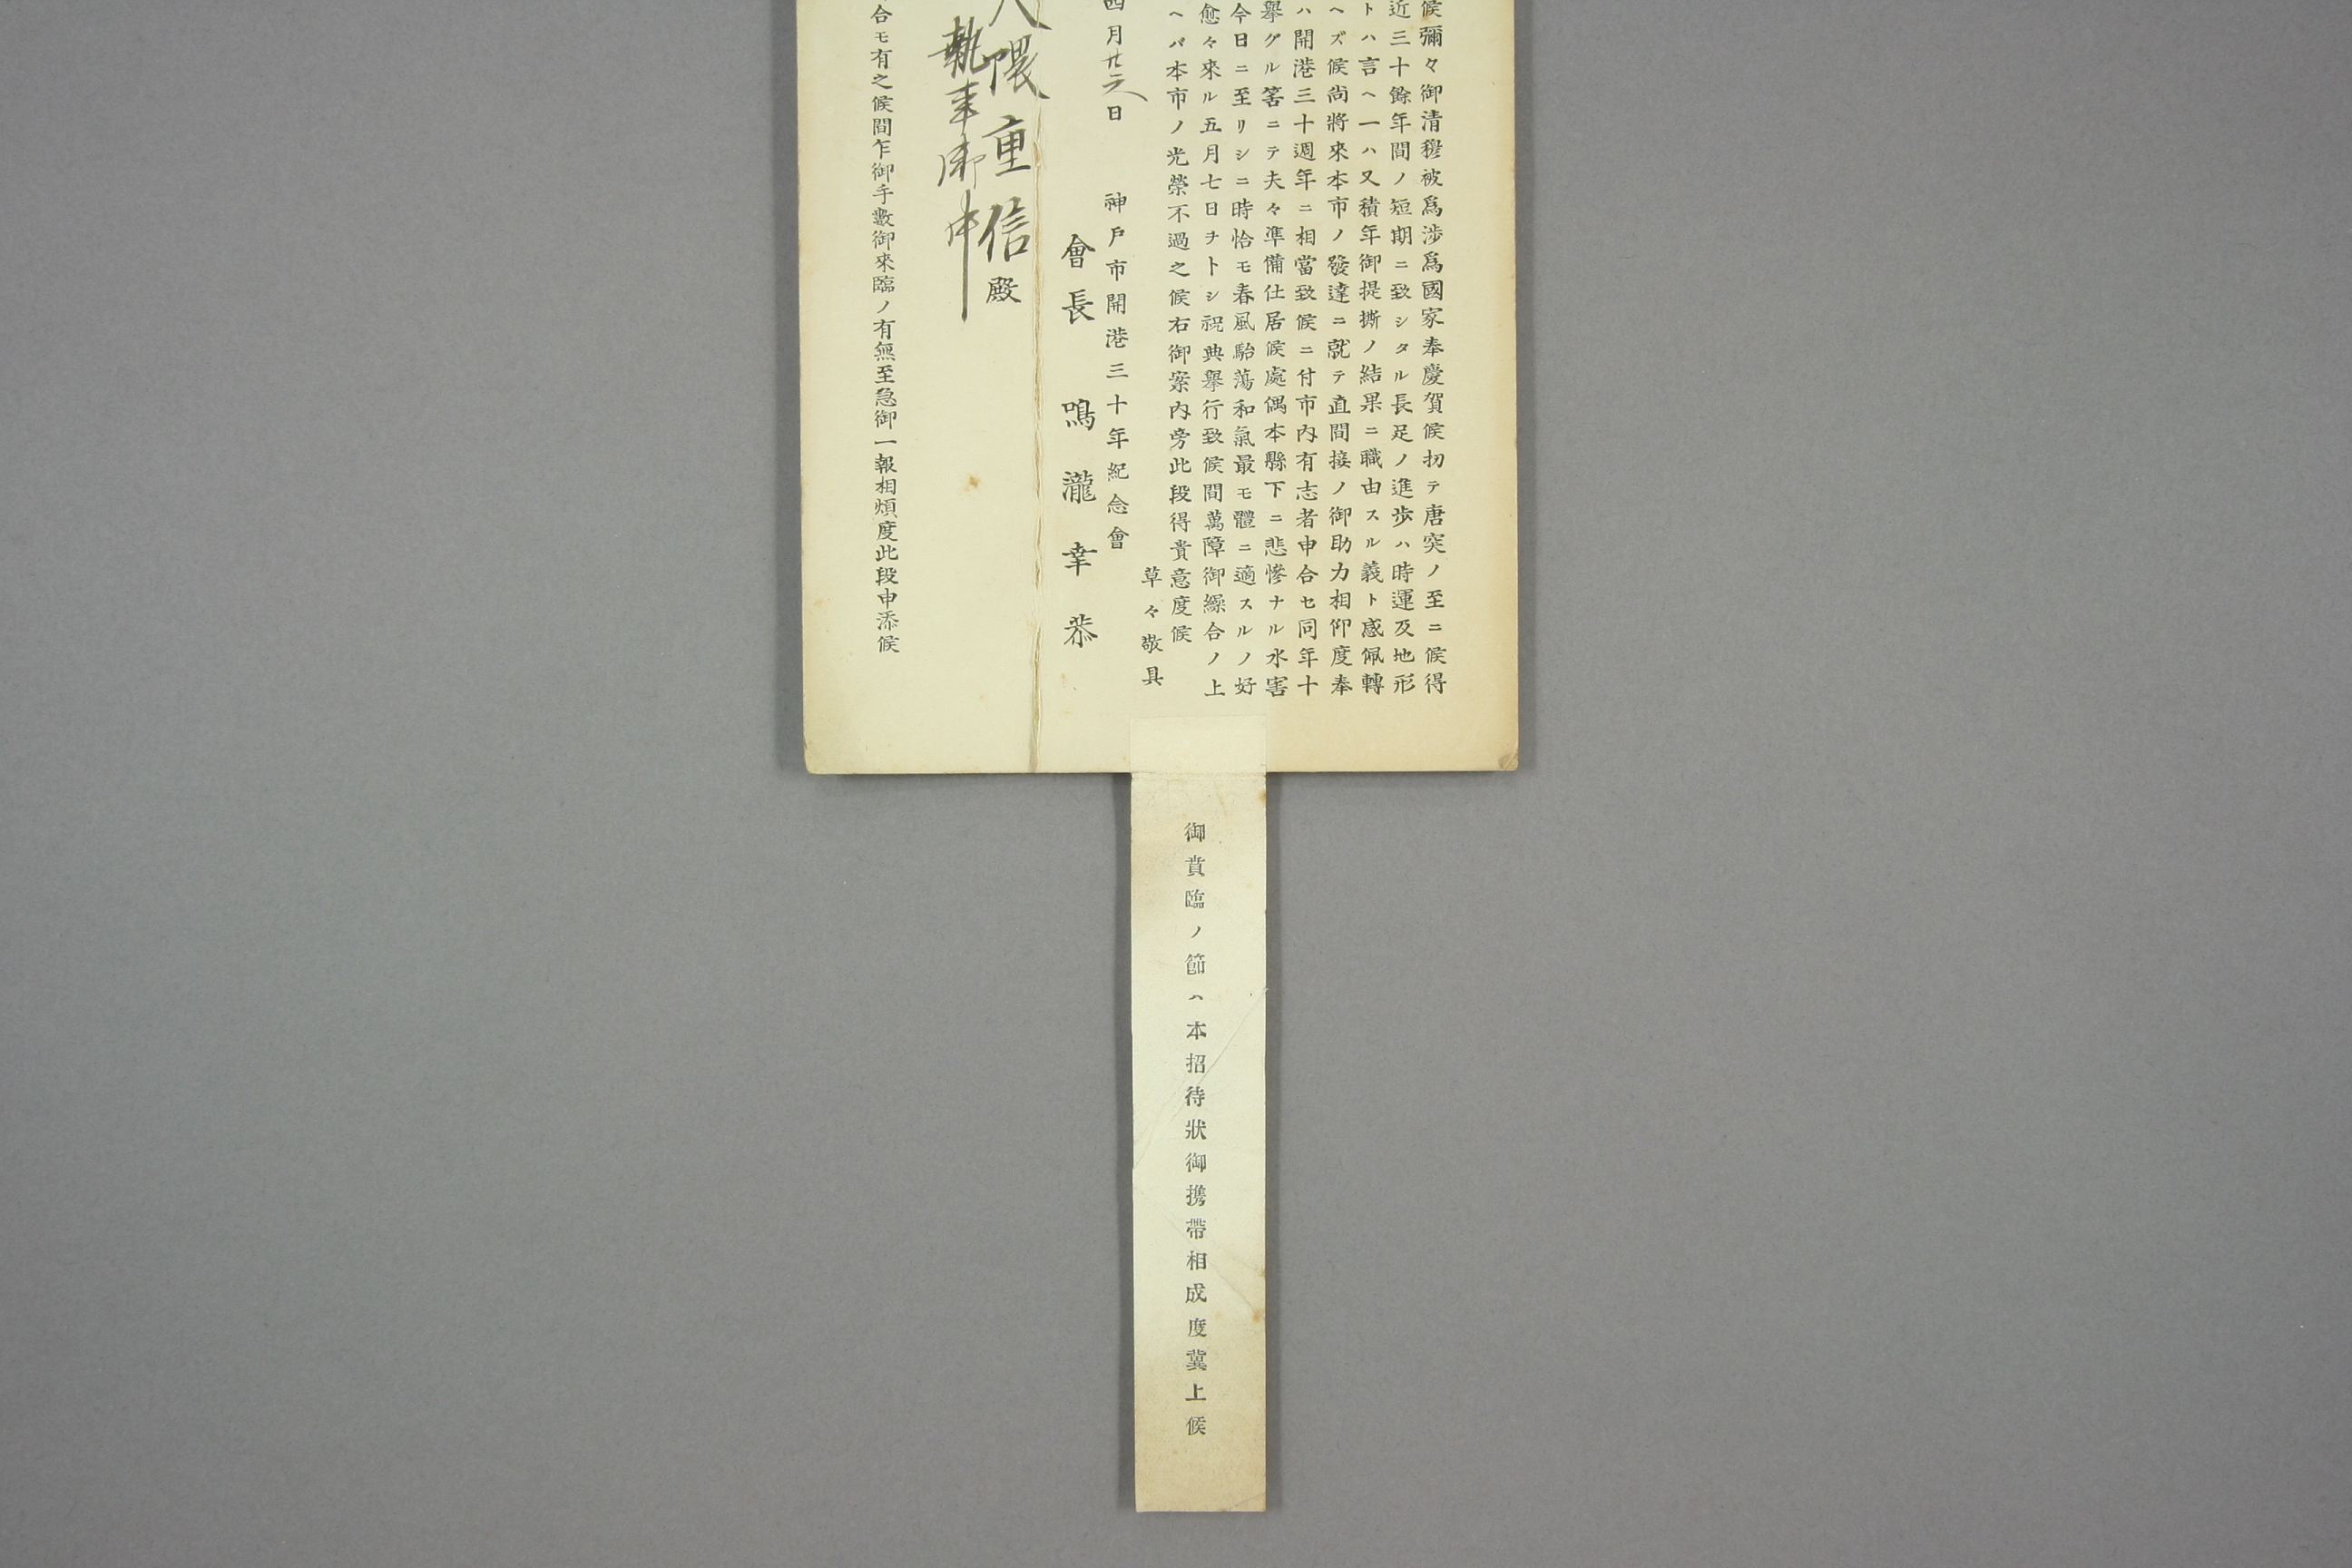 候彌々御清穆被爲渉爲國家奉慶賀候扨テ唐突ノ至ニ候得
近三十餘年間ノ短期ニ致シタル長足ノ進歩ハ時運及地形
トハ言ヘ一ハ又積年御提撕ノ結果ニ職由スル義ト感佩轉
ヘズ候尚將來本市ノ發達ニ就テ直間接ノ御助力相仰度奉
ハ開港三十週年ニ相當致候ニ付市内有志者申合セ同年十
擧グル筈ニテ夫々準備仕居候處偶本縣下ニ悲慘ナル水害
今日ニ至リシニ時恰モ春風駘蕩和氣最モ體ニ適スルノ好
愈々來ル五月七日ヲトシ祝典擧行致候間萬障御繰合ノ上
ヘバ本市ノ光榮不過之候右御案内旁此段得貴意度候
草々敬具
四月廿二日
神戸市開港三十年紀念會
會長 鳴瀧幸恭
大隈重信殿
執事御中
合モ有之候間乍御手數御來臨ノ有無至急御一報相煩度此段申添候
御賁臨ノ節ハ本招待狀御携帶相成度冀上候